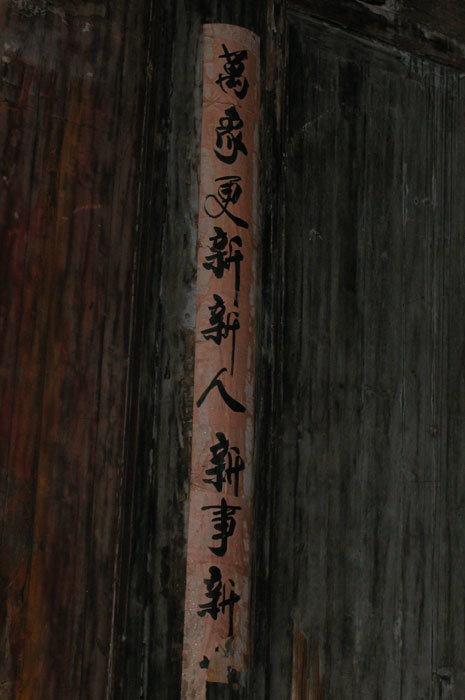 萬象更新新人新事新